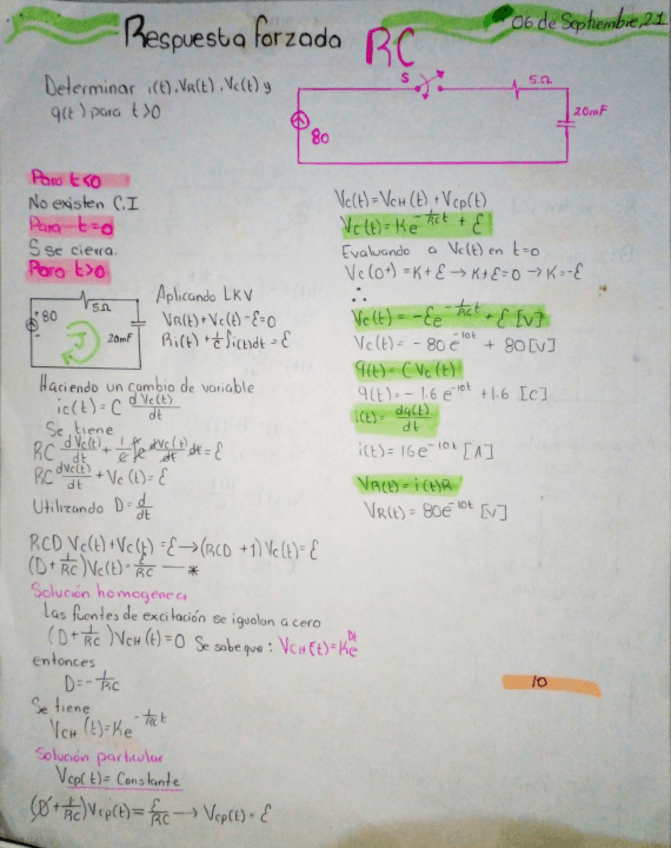 06 de Septiembre, 21
Respuesta forzada RC
Determinar i(t), VR(t), Vc(t) y
q(t) para t>0
S
5Ω
20mF
80
Para t<0
No existen C.I
Para t=0
S se cierra.
Para t>0
80
5Ω
20mF
J
Aplicando LKV
VR(t)+Vc(t)-ℰ=0
Ri(t)+1/c ∫i(t)dt=ℰ
Haciendo un cambio de variable
ic(t)=C dVc(t)/dt
Se tiene
RC dVc(t)/dt + 1/c ∫c dVc(t)/dt dt=ℰ
RC dVc(t)/dt + Vc(t)=ℰ
Utilizando D=d/dt
RCD Vc(t)+Vc(t)=ℰ→(RCD+1)Vc(t)=ℰ
(D+1/RC)Vc(t)=ℰ/RC —*
Solución homogenea
Las fuentes de excitación se igualan a cero
(D+1/RC)VCH(t)=0 Se sabe que: VCH(t)=Ke^Dt
entonces
D=-1/RC
Se tiene
VCH(t)=Ke^-1/RC t
Solución particular
Vcp(t)=Constante
(D+1/RC)Vcp(t)=ℰ/RC→Vcp(t)=ℰ
Vc(t)=VCH(t)+Vcp(t)
Vc(t)=Ke^-1/RC t+ℰ
Evaluando a Vc(t) en t=0
Vc(0+)=K+ℰ→K+ℰ=0→K=-ℰ
∴
Vc(t)=-ℰe^-1/RC t+ℰ [V]
Vc(t)=-80e^-10t+80[V]
q(t)=CVc(t)
q(t)=-1.6e^-10t+1.6 [C]
i(t)=dq(t)/dt
i(t)=16e^-10t [A]
VR(t)=i(t)R
VR(t)=80e^-10t [V]
10